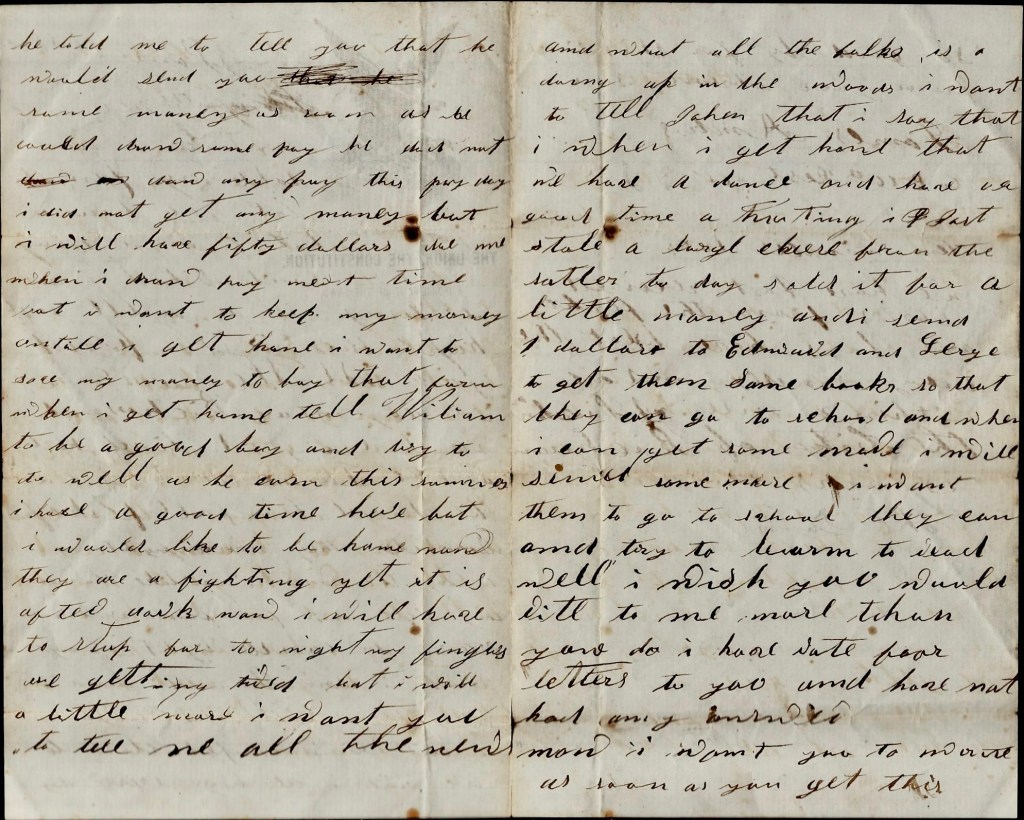 he told me to tell you that he
would send you that he
some money as soon as he
could draw some pay he did not
draw any pay this pay day
i did not get any money but
i will have fifty dollars due me
when i draw pay next time
but i want to keep my money
untell i get home i want to
save my money to buy that farm
when i get home tell Wiliam
to be a good boy and try to
do well as he can this summer
i have a good time here but
i would like to be home now
they are a fighting yet it is
after dark now i will have
to stop for to night my fingers
are getting tird but i will
a little more i want you
to tell me all the news
THE UNION, THE CONSTITUTION
and what all the folks is a
doing up in the woods i want
to tell John that i say that
i when i get home that
we have a dance and have a
good time a i Just
stole a large cheese from the
sutler to day sold it for a
little money and i send
dollars to Edward and Gerge
to get them some books so that
they can go to school and when
i can get some more i will
send some more i want
them to go to school they can
and try to learn to read
well i wish you would
rite to me more than
you do i have rote four
letters to you and have not
had any
now i want you to
as soon as you get this